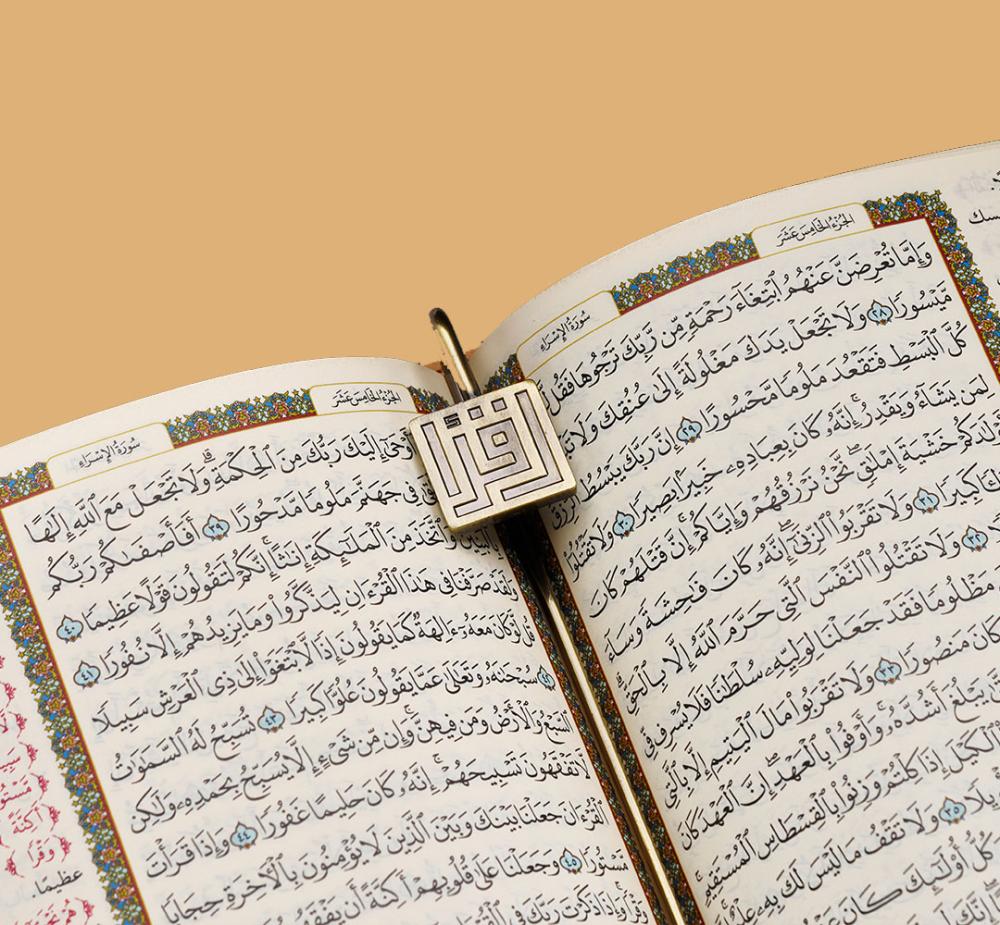 الجزء الخامس عشر
سورة الإسراء
وَإِمَّا تُعْرِضَنَّ عَنْهُمُ ٱبْتِغَآءَ رَحْمَةٍ مِّن رَّبِّكَ تَرْجُوهَا فَقُل
مَّيْسُورًا ٢٨ وَلَا تَجْعَلْ يَدَكَ مَغْلُولَةً إِلَىٰ عُنُقِكَ وَلَا
كُلَّ ٱلْبَسْطِ فَتَقْعُدَ مَلُومًا مَّحْسُورًا ٢٩ إِنَّ رَبَّكَ يَبْسُطُ ٱلرِّزْقَ
لِمَن يَشَآءُ وَيَقْدِرُ إِنَّهُۥ كَانَ بِعِبَادِهِۦ خَبِيرًۢا بَصِيرًا ٣٠ وَلَا تَقْتُلُوٓا۟
خَشْيَةَ إِمْلَٰقٍ نَّحْنُ نَرْزُقُهُمْ وَإِيَّاكُمْ إِنَّ قَتْلَهُمْ كَانَ
كَبِيرًا ٣١ وَلَا تَقْرَبُوا۟ ٱلزِّنَىٰٓ إِنَّهُۥ كَانَ فَٰحِشَةً وَسَآءَ
٣٢ وَلَا تَقْتُلُوا۟ ٱلنَّفْسَ ٱلَّتِى حَرَّمَ ٱللَّهُ إِلَّا بِٱلْحَقِّ
مَظْلُومًا فَقَدْ جَعَلْنَا لِوَلِيِّهِۦ سُلْطَٰنًا فَلَا يُسْرِف فِّى
كَانَ مَنصُورًا ٣٣ وَلَا تَقْرَبُوا۟ مَالَ ٱلْيَتِيمِ إِلَّا بِٱلَّتِى
يَبْلُغَ أَشُدَّهُۥ وَأَوْفُوا۟ بِٱلْعَهْدِ إِنَّ ٱلْعَهْدَ كَانَ
ٱلْكَيْلَ إِذَا كِلْتُمْ وَزِنُوا۟ بِٱلْقِسْطَاسِ ٱلْمُسْتَقِيمِ
٣٥ وَلَا تَقْفُ مَا لَيْسَ لَكَ بِهِۦ عِلْمٌ
كُلُّ أُو۟لَٰٓئِكَ كَانَ
اقرأ
الجزء الخامس عشر
سورة الإسراء
إِلَيْكَ رَبُّكَ مِنَ ٱلْحِكْمَةِ وَلَا تَجْعَلْ مَعَ ٱللَّهِ إِلَٰهًا
فِى جَهَنَّمَ مَلُومًا مَّدْحُورًا ٣٩ أَفَأَصْفَىٰكُمْ رَبُّكُم
بِٱلْبَنِينَ وَٱتَّخَذَ مِنَ ٱلْمَلَٰٓئِكَةِ إِنَٰثًا إِنَّكُمْ لَتَقُولُونَ قَوْلًا عَظِيمًا ٤٠
وَلَقَدْ صَرَّفْنَا فِى هَٰذَا ٱلْقُرْءَانِ لِيَذَّكَّرُوا۟ وَمَا يَزِيدُهُمْ إِلَّا نُفُورًا ٤١
قُل لَّوْ كَانَ مَعَهُۥٓ ءَالِهَةٌ كَمَا يَقُولُونَ إِذًا لَّٱبْتَغَوْا۟ إِلَىٰ ذِى ٱلْعَرْشِ سَبِيلًا
٤٢ سُبْحَٰنَهُۥ وَتَعَٰلَىٰ عَمَّا يَقُولُونَ عُلُوًّا كَبِيرًا ٤٣ تُسَبِّحُ لَهُ ٱلسَّمَٰوَٰتُ
ٱلسَّبْعُ وَٱلْأَرْضُ وَمَن فِيهِنَّ وَإِن مِّن شَىْءٍ إِلَّا يُسَبِّحُ بِحَمْدِهِۦ وَلَٰكِن
لَّا تَفْقَهُونَ تَسْبِيحَهُمْ إِنَّهُۥ كَانَ حَلِيمًا غَفُورًا ٤٤ وَإِذَا قَرَأْتَ
ٱلْقُرْءَانَ جَعَلْنَا بَيْنَكَ وَبَيْنَ ٱلَّذِينَ لَا يُؤْمِنُونَ بِٱلْءَاخِرَةِ حِجَابًا
مَّسْتُورًا ٤٥ وَجَعَلْنَا عَلَىٰ قُلُوبِهِمْ أَكِنَّةً أَن يَفْقَهُوهُ
وَإِذَا ذَكَرْتَ رَبَّكَ فِى
أَكِنَّةً
وَقْرًا
عظيمًا.